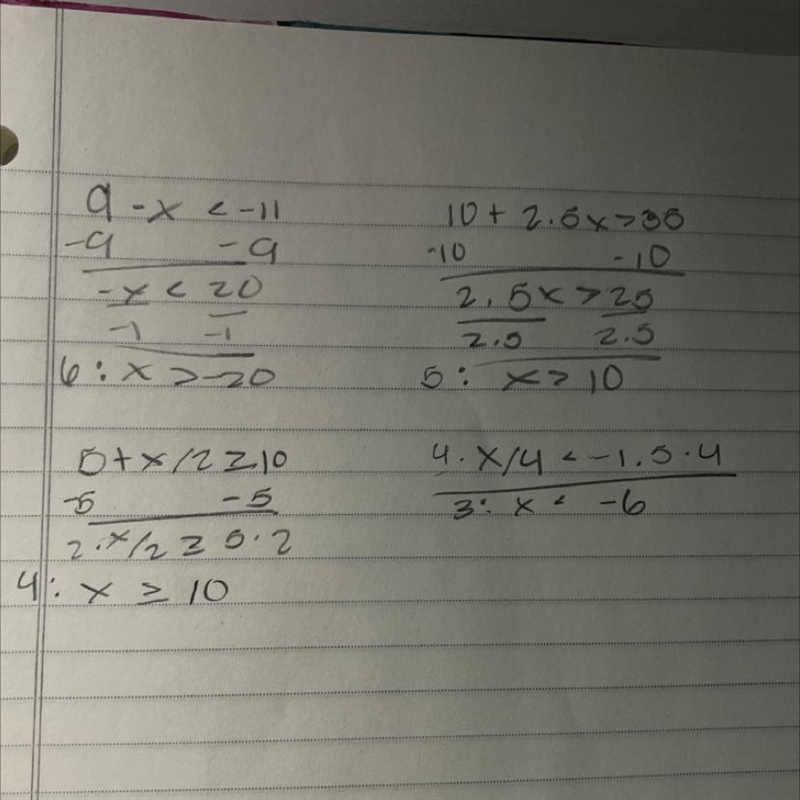 9 - x < -11
-9 -9
-x < 20
-1 -1
6: x > -20
10 + 2.5x > 35
-10 -10
2.5x > 25
2.5 2.5
5: x > 10
5 + x/2 ≥ 10
-5 -5
2 · x/2 ≥ 5 · 2
4: x ≥ 10
4 · x/4 < -1.5 · 4
3: x < -6